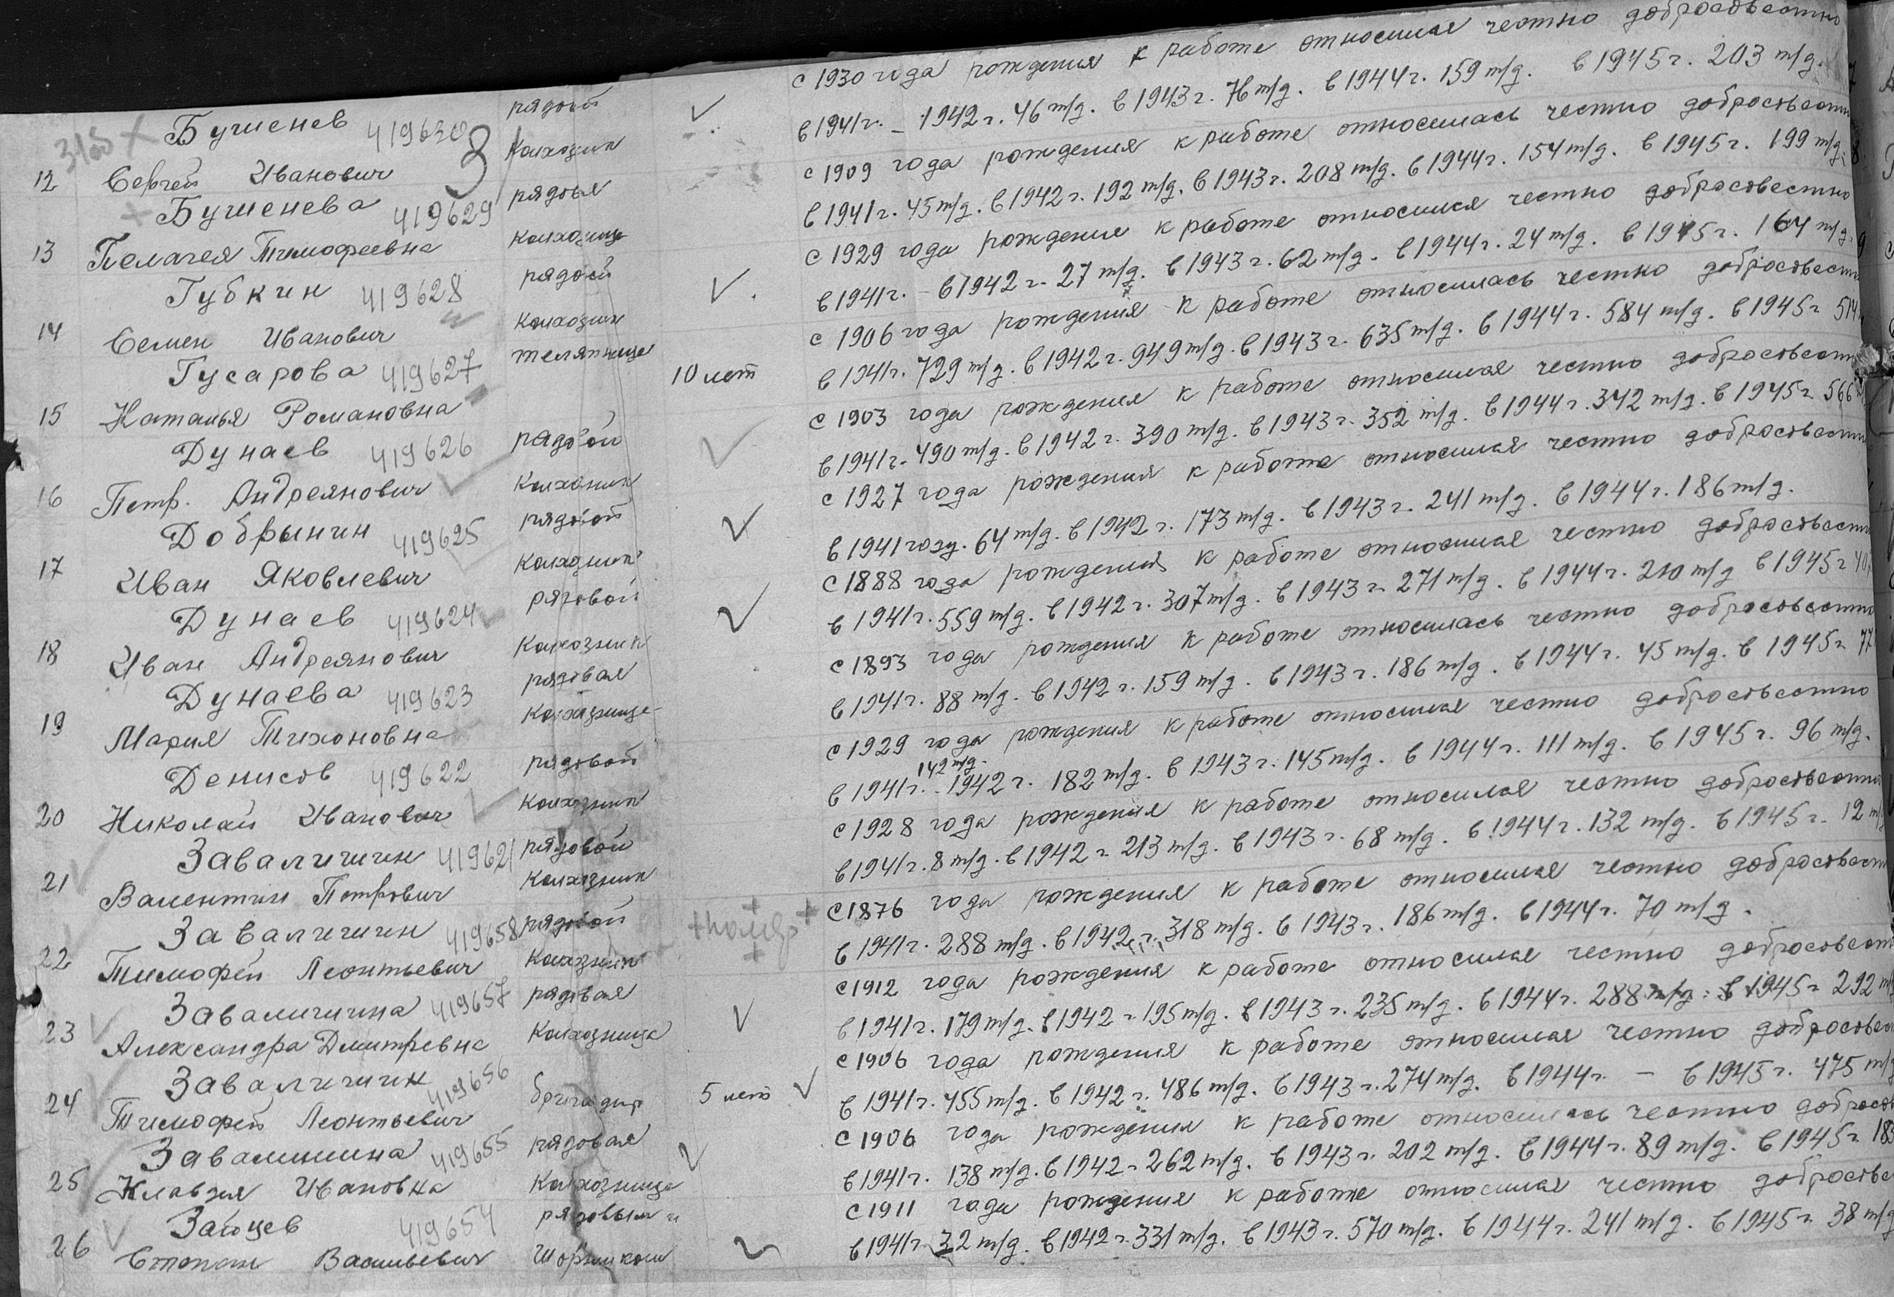 с 1930 года рождения к работе относился честно добросовестно
Бушенев 419630 рядовой в 1941г. – 1942 г. 46 т/д. в 1943 г. 76 т/д. в 1944 г. 159 т/д. в 1945 г. 203 т/д.
12 Сергей Иванович колхозник с 1909 года рождения к работе относилась честно добросовестно
Бушенева 419629 рядовая в 1941 г. 45 т/д. в 1942 г. 192 т/д. в 1943 г. 208 т/д. в 1944 г. 154 т/д. в 1945 г. 199 т/д.
13 Пелагея Тимофеевна колхозница с 1929 года рождения к работе относился честно добросовестно
Губкин 419628 рядовой в 1941г. – в 1942 г. 27 т/д. в 1943 г. 62 т/д. в 1944 г. 24 т/д. в 1945 г. 164 т/д.
14 Семен Иванович колхозник с 1906 года рождения к работе относилась честно добросовестно
Гусарова 419627 телятница 10 лет в 1941г. 729 т/д. в 1942 г. 949 т/д. в 1943 г. 635 т/д. в 1944 г. 584 т/д. в 1945 г 514
15 Наталья Романовна с 1903 года рождения к работе относился честно добросовестно
Дунаев 419626 рядовой в 1941г. 490 т/д. в 1942 г. 390 т/д. в 1943 г. 352 т/д. в 1944 г. 342 т/д. в 1945 г. 566
16 Петр. Андреянович колхозник с 1927 года рождения к работе относился честно добросовестно
Добрынин 419625 рядовой в 1941 году. 64 т/д. в 1942 г. 173 т/д. в 1943 г. 241 т/д. в 1944 г. 186 т/д.
17 Иван Яковлевич колхозник с 1888 года рождения к работе относился честно добросовестно
Дунаев 419624 рядовой в 1941г. 559 т/д. в 1942 г. 307 т/д. в 1943 г. 271 т/д. в 1944 г. 210 т/д в 1945 г
18 Иван Андреянович колхозник с 1893 года рождения к работе относилась честно добросовестно
Дунаева 419623 рядовая в 1941г. 88 т/д. в 1942 г. 159 т/д. в 1943 г. 186 т/д. в 1944 г. 45 т/д. в 1945 г 77
19 Мария Тихоновна колхозница с 1929 года рождения к работе относился честно добросовестно
142 т/д.
Денисов 419622 рядовой в 1941г. 1942 г. 182 т/д. в 1943 г. 145 т/д. в 1944 г. 111 т/д. в 1945 г. 96 т/д.
20 Николай Иванович колхозник с 1928 года рождения к работе относился честно добросовестно
Заваличшин 419621 рядовой в 1941г. 8 т/д. в 1942 г 213 т/д. в 1943 г. 68 т/д. в 1944 г. 132 т/д. в 1945 г. 12
21 Валентин Петрович колхозник с 1876 года рождения к работе относился честно добросовестно
Заваличшин 419658 рядовой + помер + в 1941г. 288 т/д. в 1942 г. 318 т/д. в 1943 г. 186 т/д. в 1944 г. 70 т/д.
22 Тимофей Леонтьевич колхозник с 1912 года рождения к работе относился честно добросовестно
Заваличшина 419657 рядовая в 1941г. 179 т/д. в 1942 г 195 т/д. в 1943 г. 235 т/д. в 1944 г. 288 т/д. в 1945 г 292
23 Александра Дмитревна колхозница с 1906 года рождения к работе относился честно добросовестно
Заваличшин 419656 бригадир 5 лет в 1941г. 455 т/д. в 1942 г. 486 т/д. в 1943 г. 274 т/д. в 1944 г. – в 1945 г. 475 т/д
24 Тимофей Леонтьевич с 1906 года рождения к работе относилась честно добросов
Завалишина 419655 рядовая в 1941г. 138 т/д. в 1942 г 262 т/д. в 1943 г. 202 т/д. в 1944 г. 89 т/д. в 1945 г 183
25 Клавдия Ивановна колхозница с 1911 года рождения к работе относился честно добросове
Зайцев 419654 рядовым и в 1941г. 32 т/д. в 1942 г. 331 т/д. в 1943 г. 570 т/д. в 1944 г. 241 т/д. в 1945 г. 38 т/д
26 Степан Васильевич шорником